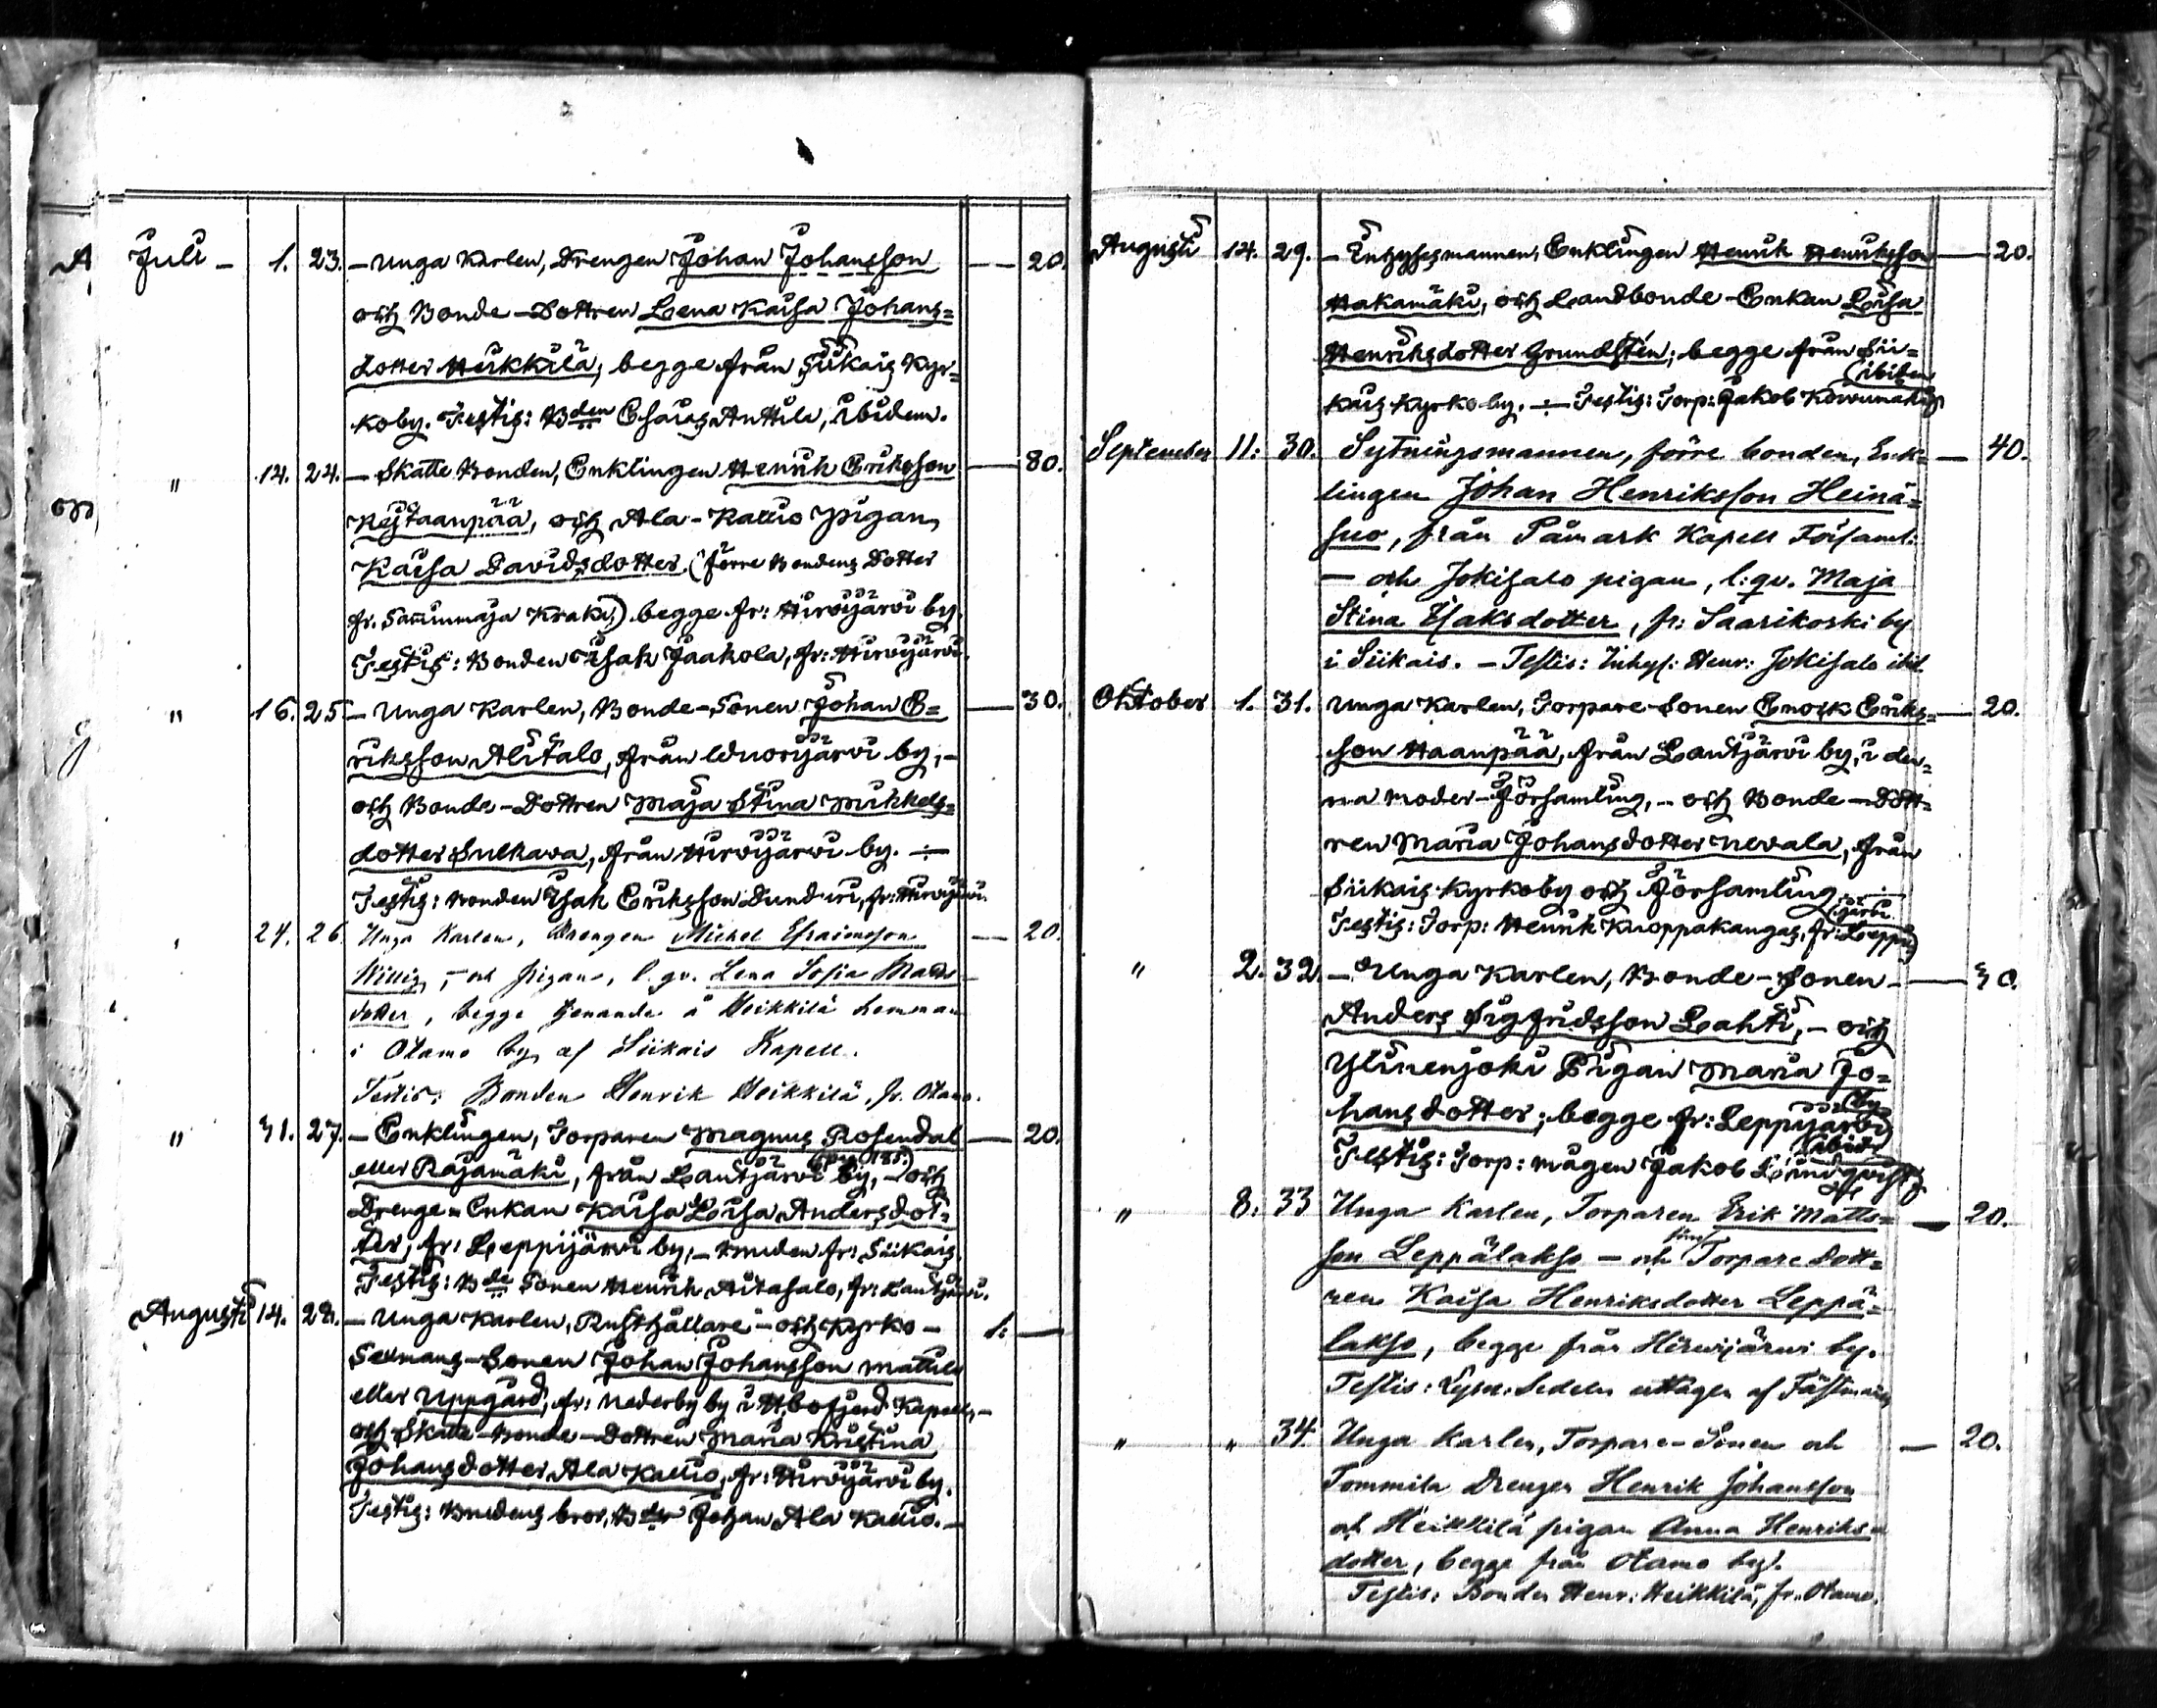 Juli – 1. 23. – Unga Karlen, Drengen Johan Johansson — 20.
och Bonde-Dottren Lena Kaisa Johans=
dotter Heikkilä, begge från Siikais Kyr=
koby. Testis: Bden Esaias Anttila, ibidem.
" 14. 24. – Skatte Bonden, Enklingen Henrik Eriksson — 80.
Kejtaanpää, och Ala-Kallio Pigan,
Kaisa Davidsdotter, (förre Bondens Dotter
fr. Samminmaja Kraki,) begge fr: Hirvijärvi by.
Testis: Bonden Isak Jaakola, fr: Hirvijärvi.
" 16. 25 – Unga Karlen, Bonde-Sonen Johan E= — 30.
riksson Alitalo, från Wuorijärvi by, –
och Bonde-Dottren Maja Stina Mikkels=
dotter Sulkava, från Hirvijärvi by. ÷
Testis: Bonden Isak Eriksson Dunderi, fr: Hirvijärvi.
24. 26 Unga Karlen, Drengen Michel Efraimsson — 20.
Willig, – och pigan, l. qv. Lena Sofia Matts=
dotter, begge tjenande å Heikkilä hemman
i Otamo by af Siikais Kapell.
Testis: Bonden Henrik Heikkilä, fr. Otamo.
" 31. 27. – Enklingen, Torparen Magnus Rosendal — 20.
eller Rajamäki, från Lautjärvi by, – och
Drenge-Enkan Kaisa Lovisa Andersdot=
ter, fr: Leppijärvi by, – bruden fr: Siikais.
Testis: Bde Sonen Henrik Aitasalo, fr: Lautjärvi.
Augusti 14. 28. – Unga Karlen, Rusthållare- och Kyrko- 1. —
Sexmans-Sonen Johan Johansson Mattila
eller Uppgård, fr: Nederby by i Hbofjerd Kapell, –
och Skatte-Bonde-Dottren Maria Kristina
Johansdotter Ala Kallio, fr: Hirvijärvi by.
Testis: Brudens bror, Bden Johan Ala Kallio. –
Augusti 14. 29. – Inhysesmannen, Enklingen Henrik Henriksson — 20.
Hakamäki, och Landbonde-Enkan Lisa
Henriksdotter Grundstén; begge från Sii=
kais Kyrkoby. ÷ Testis: Torp: Jakob Koivumäki, (ibidem
September 11: 30. Sytningsmannen, förre bonden, Enk= — 40.
lingen Johan Henriksson Heinä=
suo, från Påmark Kapell Församl:
– och Jokisalo pigan, l: qv. Maja
Stina Isaksdotter, fr: Saarikoski by
i Siikais. – Testis: Inhys: Henr: Jokisalo ibid.
Oktober 1. 31. Unga Karlen, Torpare-Sonen Enock Eriks= — 20.
son Haanpää, från Lautjärvi by, i den=
na Moder-Församling, – och Bonde-Dott=
ren Maria Johansdotter Nevala, från
Siikais Kyrkoby och Församling. ÷
Testis: Torp: Henrik Knoppakangas, fr: Leppi (järvi
" 2. 32. – Unga Karlen, Bonde-Sonen — 30.
Anders Sigfridsson Lahti, – och
Ylinenjoki Pigan Maria Jo=
hansdotter; begge fr: Leppijärvi (by
Testis: Torp: mågen Jakob Lindqvist, (ibid
" 8. 33 Unga Karlen, Torparen Erik Matts= — 20.
son Leppälakso – och Torpare Dott=
ren Kaisa Henriksdotter Leppä=
lakso, begge från Hirwijärwi by.
Testis: Lysn: Sedeln uttagen af Fästmän
" " 34. Unga Karlen, Torpare-Sonen och — 20.
Tommila Drengen Henrik Johansson
och Heikkilä pigan Anna Henriks=
dotter, begge från Otamo by.
Testis: Bonden Henr: Heikkilä, fr. Otamo.